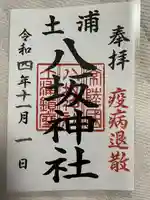 奉拝
疫病退散
土浦
八坂神社
令和四年十一月一日